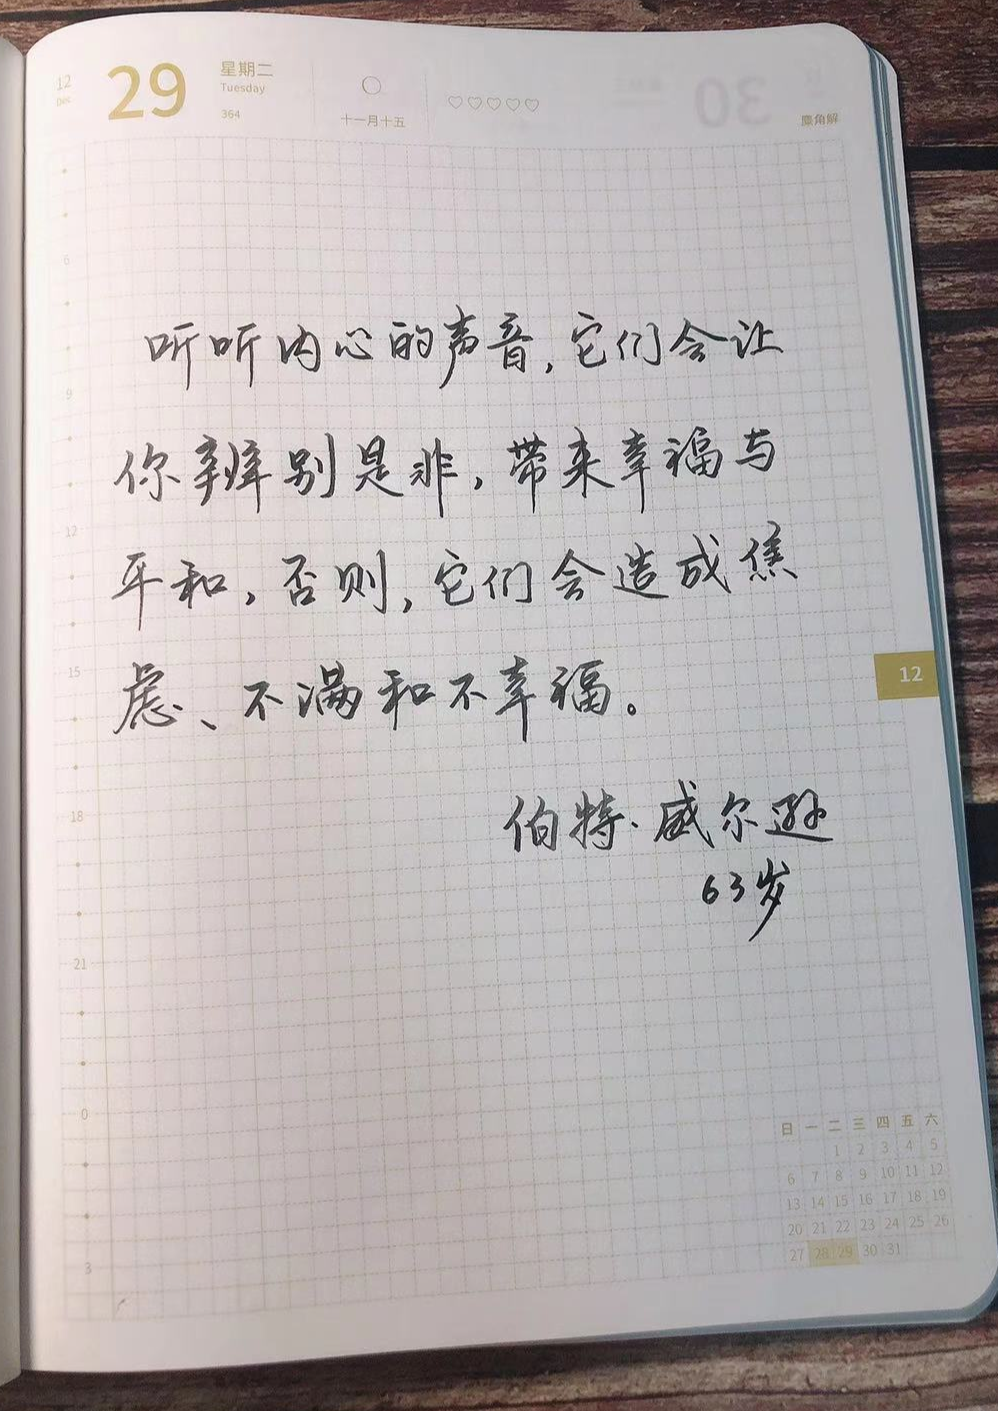 12
Dec
29
星期二
Tuesday
364
十一月十五
♡♡♡♡♡
30
麋角解
6
9
12
15
18
21
0
3
听听内心的声音,它们会让
你辨别是非,带来幸福与
平和,否则,它们会造成焦
虑、不满和不幸福。
伯特·威尔逊
63岁
12
日 一 二 三 四 五 六
1 2 3 4 5
6 7 8 9 10 11 12
13 14 15 16 17 18 19
20 21 22 23 24 25 26
27 28 29 30 31